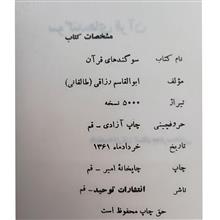 سوگندهای قرآن
مشخصات کتاب
نام کتاب سوگندهای قرآن
مؤلف ابوالقاسم رزاقی (طالقانی)
تیراژ ۵۰۰۰ نسخه
حروفچینی چاپ آزادی - قم
تاریخ خردادماه ۱۳۶۱
چاپ چاپخانهٔ امیر - قم
ناشر انتشارات توحید - قم
حق چاپ محفوظ است